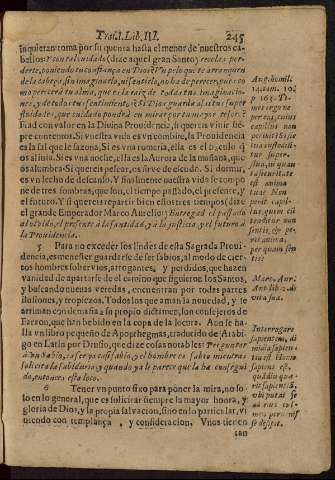 Trat. I. Lib. III. 245
Inquieran: toma por su quenta hasta el menor de nuestros ca-
bellos: Y con tal cuidado (dize aquel gran Santo) recelas per-
derte, poniendo tu confiança en Dios? Un pelo que te arranquen
de la cabeça, sin imaginarlo, ni sentirlo, no ha de perecer, pues co-
mo perecerà tu alma, que es la raiz de todas tus imaginacio-
nes, y de todo tu sentimiento? Si Dios guarda assi tus super
fluidades, que cuidado pondrà en mirar por tu mayor tesoro?
Fiad con valor en la Divina Providencia, si quereis vivir siẽ-
pre contentos. Si vuestra vida es vn combite, la Providencia
es la sal que le sazona. Si es vna romeria, ella es el
os alivia. Si es vna noche, ella es la Aurora de la mañana, que
os alumbra. Si quereis pelear, os sirve de escudo. Si dormir,
es vn lecho de descanso. Y finalmente nuestra vida se compo
ne de tres sombras, que son, el tiempo passado, el presente, y
el futuro. Y si quereis repartir bien estos tres tiempos (dize
el grande Emperador Marco Aurelio:) Entregad el passado
al olvido, el presente à la santidad, y à la justicia, y el futuro à
la Providencia.
5 Para no exceder los lindes de esta Sagrada Provi-
dencia, es menester guardarse de ser sabios, al modo de cier-
tos hombres sobervios, arrogantes, y perdidos, que hazen
vanidad de apartarse de el camino que siguieron los Santos,
y buscando nuevas veredas, encuentran por todas partes
ilusiones, y tropiezos. Todos los que aman la novedad, y te
arriman con demasia à su propio dictamen, son consejeros de
Faraon, que han bebido en la copa de la locura. Aun se ha-
lla vn libro pequeño de Apophthegmas, traducido de Arabi-
go en Latin por Drusio, que dize cosas notables: Preguntar
à vn sabio, es ser ya casi sabio, y el hombre es sabio mientras
solicita la sabiduria; y quando ya le parece que la ha consegui
do, entonces esta loco.
6 Tener vn punto fixo para poner la mira, no so-
lo en lo general, que es solicitar siempre la mayor honra, y
gloria de Dios, y la propia salvacion, sino en lo particular, vi
viendo con templança, y consideracion. Unos tienen
tan
Aug. homil.
14. tom. 10.
p. 163. Ti-
mes ne pe-
reas, cuius
capillus non
peribit? Si sic
tua custodiũ-
tur super-
flua, in quan-
ta securitate
est anima
tua? Non
perit capil-
lus, quem cũ
tondetur non
sentis, & pe-
rit anima,
per quam sen
tis?
Marc. Aur.
Ant. lib. 2. de
vita sua.
Interrogare
sapientem, di-
midia sapien-
tia est. Homo
sapiens est,
quandiu quæ-
rit sapientiã,
vbi putat se
ad eius cul-
men pervenis
se desipit.